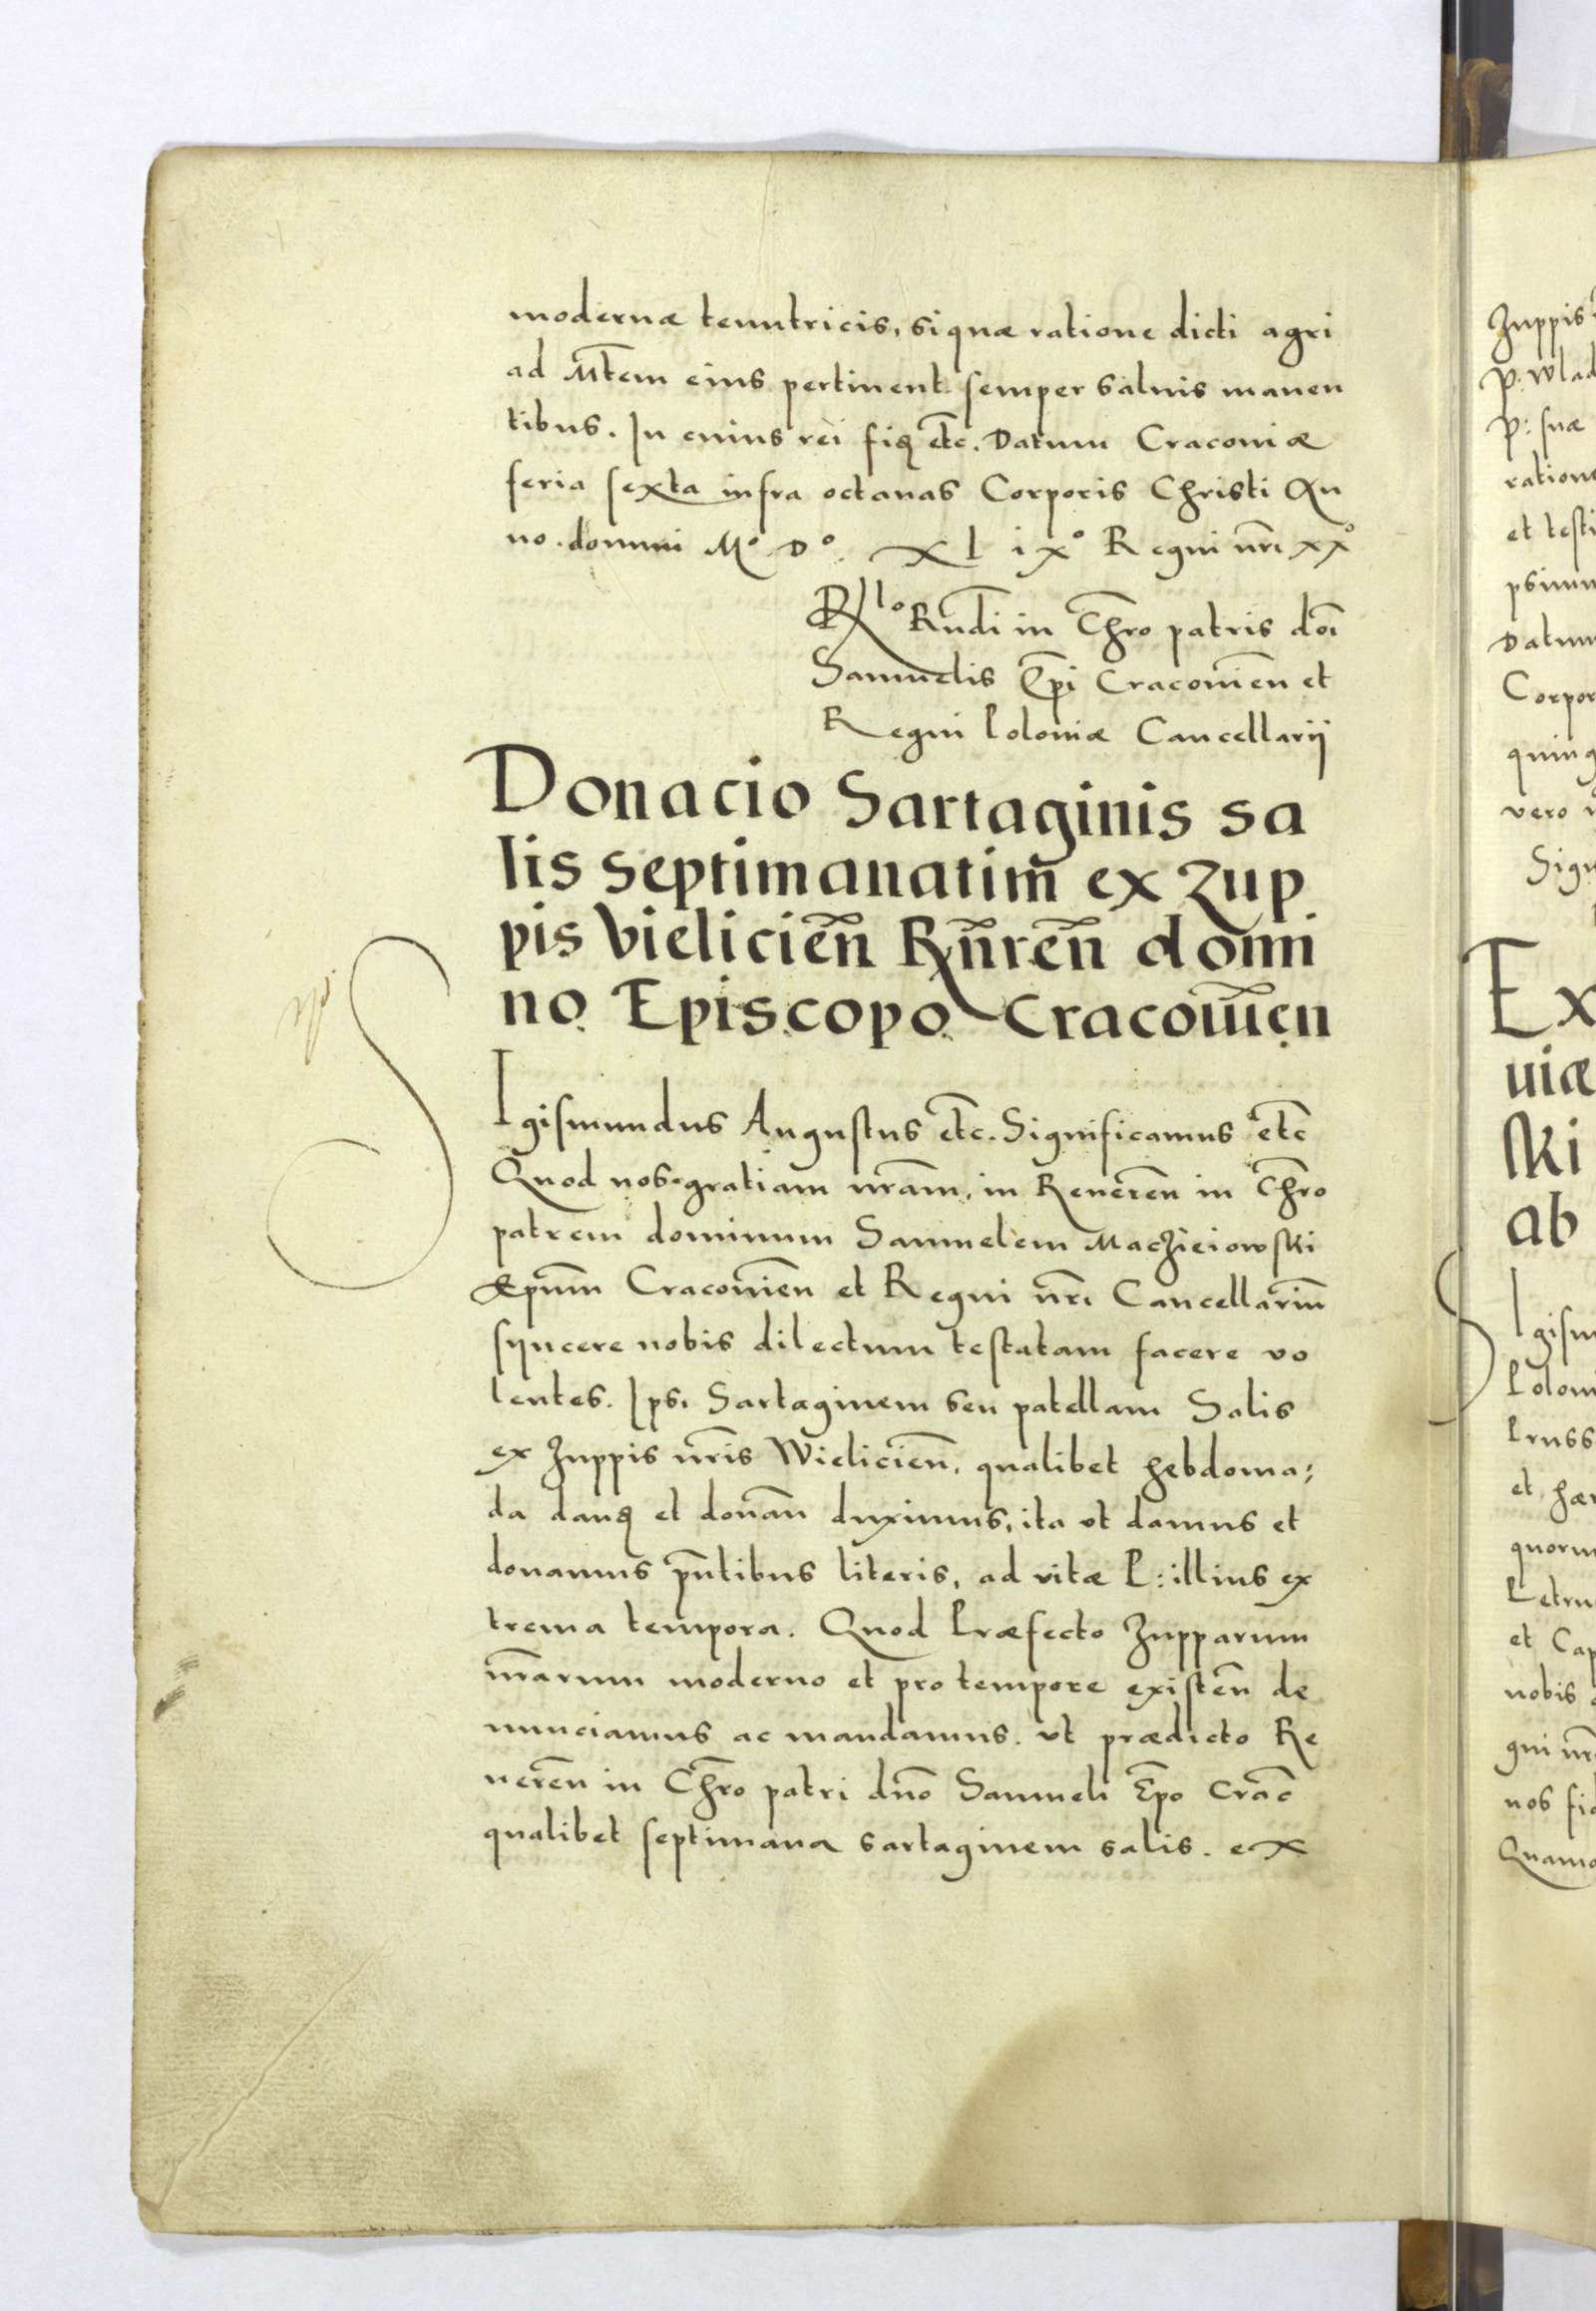 modernæ tenutricis, siquæ ratione dicti agri
ad Mt̃em eius pertinent semper saluis manen
tibus. In cuius rei fiɋ etc̃. Datum Cracouiæ
feria sexta infra octauas Corporis Christi An
no. domini M° D° XL ix° Regni nr̃i xx°
Rlo Rũdi in Chr̃o patris doı̃
Samuelis Ep̃i Cracouien̄ et
Regni Poloniæ Cancellarij
Donacio Sartaginis sa
lis septimanatim̃ ex Zup
pis Vielicien̄ Rn̄ren̄ domi
no Episcopo Cracouien̄
Sigismundus Augustus etc̃. Significamus etc̃
Quod nos gratiam nrãm, in Reueren̄ in Chr̃o
patrem dominum Samuelem Maczieiowski
Ep̃um Cracouien̄ et Regni nr̃i Cancellariũ
syncere nobis dilectum testatam facere vo
lentes. Ipsi Sartaginem seu patellam Salis
ex Zuppis nr̃is Wielicien̄, qualibet hebdoma;
da danɋ et donan̄ duximus, ita vt damus et
donamus pñtibus literis, ad vitæ P: illius ex
trema tempora. Quod Præfecto Zupparum
nr̃arum moderno et pro tempore existen̄ de
nunciamus ac mandamus. vt prædicto Re
ueren̄ in Chr̃o patri dño Samueli Ep̃o Crac̃
qualibet septimana sartaginem salis. ex
Zuppis
P: Wlad
P: suæ
ratione
et testi
Datum
Corpor
quinq
vero
Sign
Ex
uiæ
ski
ab
Sigism
Poloni
Pruss
et hær
quorum
Petru
et Cap
nobis
gni nr̃
nos fid
Quamo